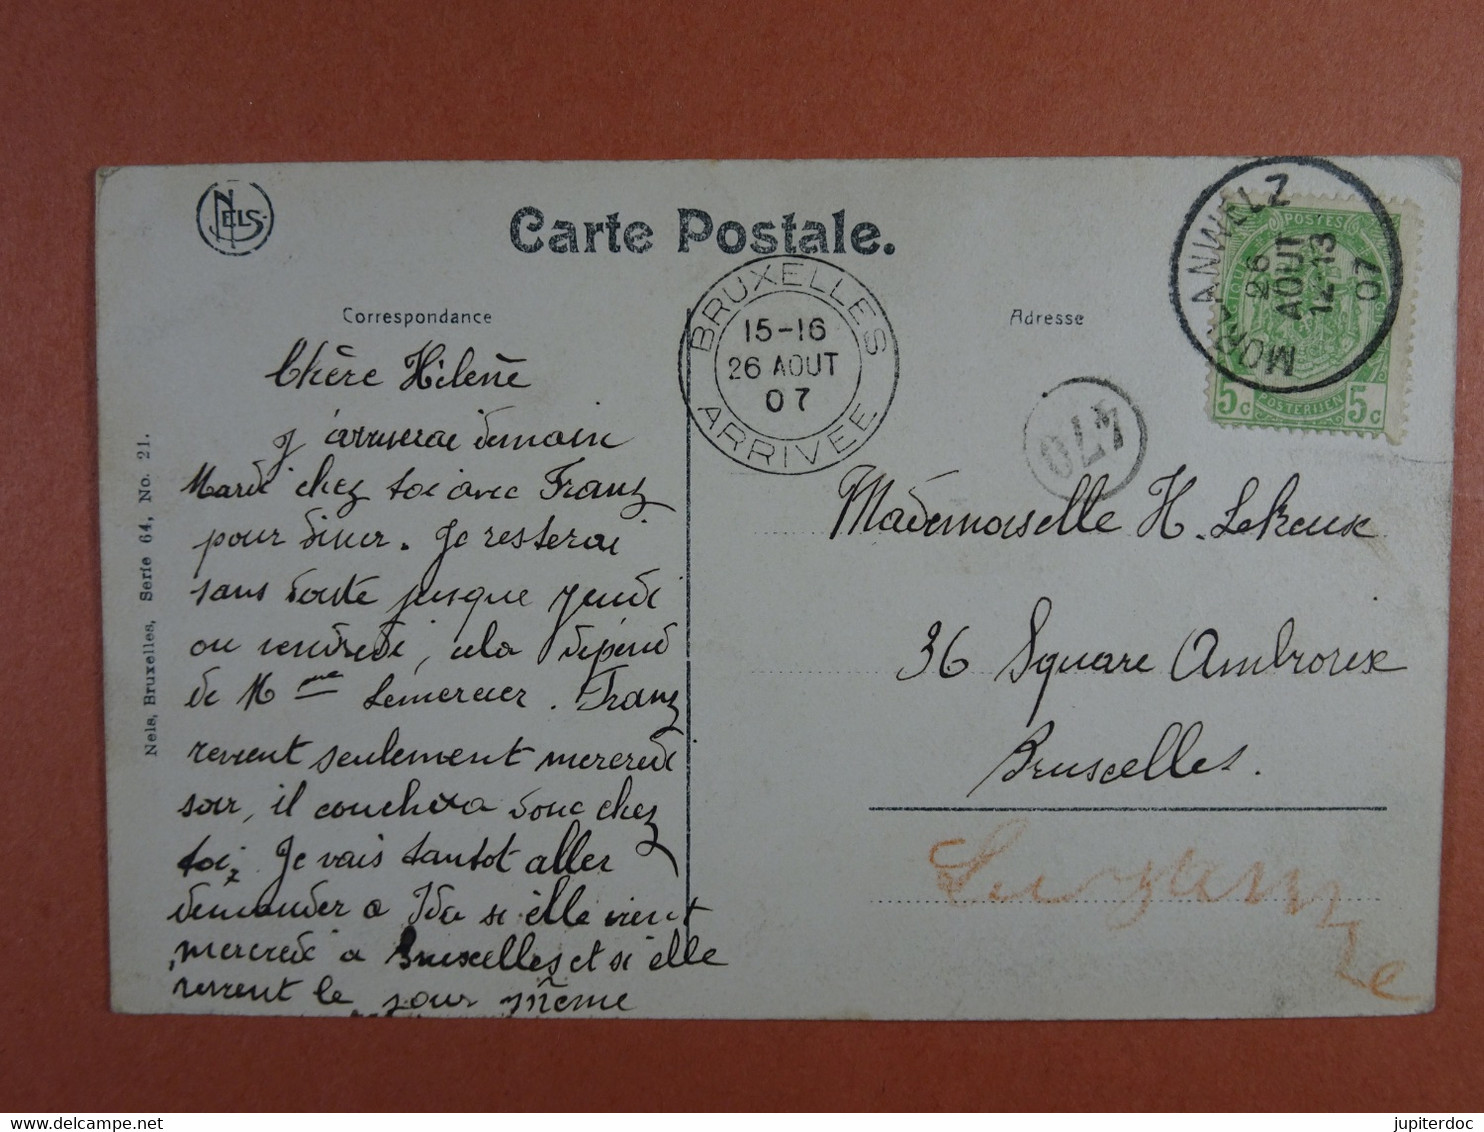 NELS
Carte Postale.
Correspondance
Adresse
MORLANWELZ
26
AOUT
12-13
07
POSTES
5c POSTERIJEN 5c
BRUXELLES
15-16
26 AOUT
07
ARRIVEE
470
Chère Hélène
J'arriverai demain
Mardi chez toi avec Franz
pour diner. Je resterai
sans doute jusque jeudi
ou vendredi, cela dépend
de Mme Lemercier. Franz
revient seulement mercredi
soir, il couchera donc chez
toi. Je vais tantot aller
demander a Ida si elle vient
mercredi a Bruxelles et si elle
revient le jour même
Mademoiselle H. Lekeux
36 Square Ambiorix
Bruxelles.
Nels, Bruxelles, Serie 64, No. 21.
jupiterdoc